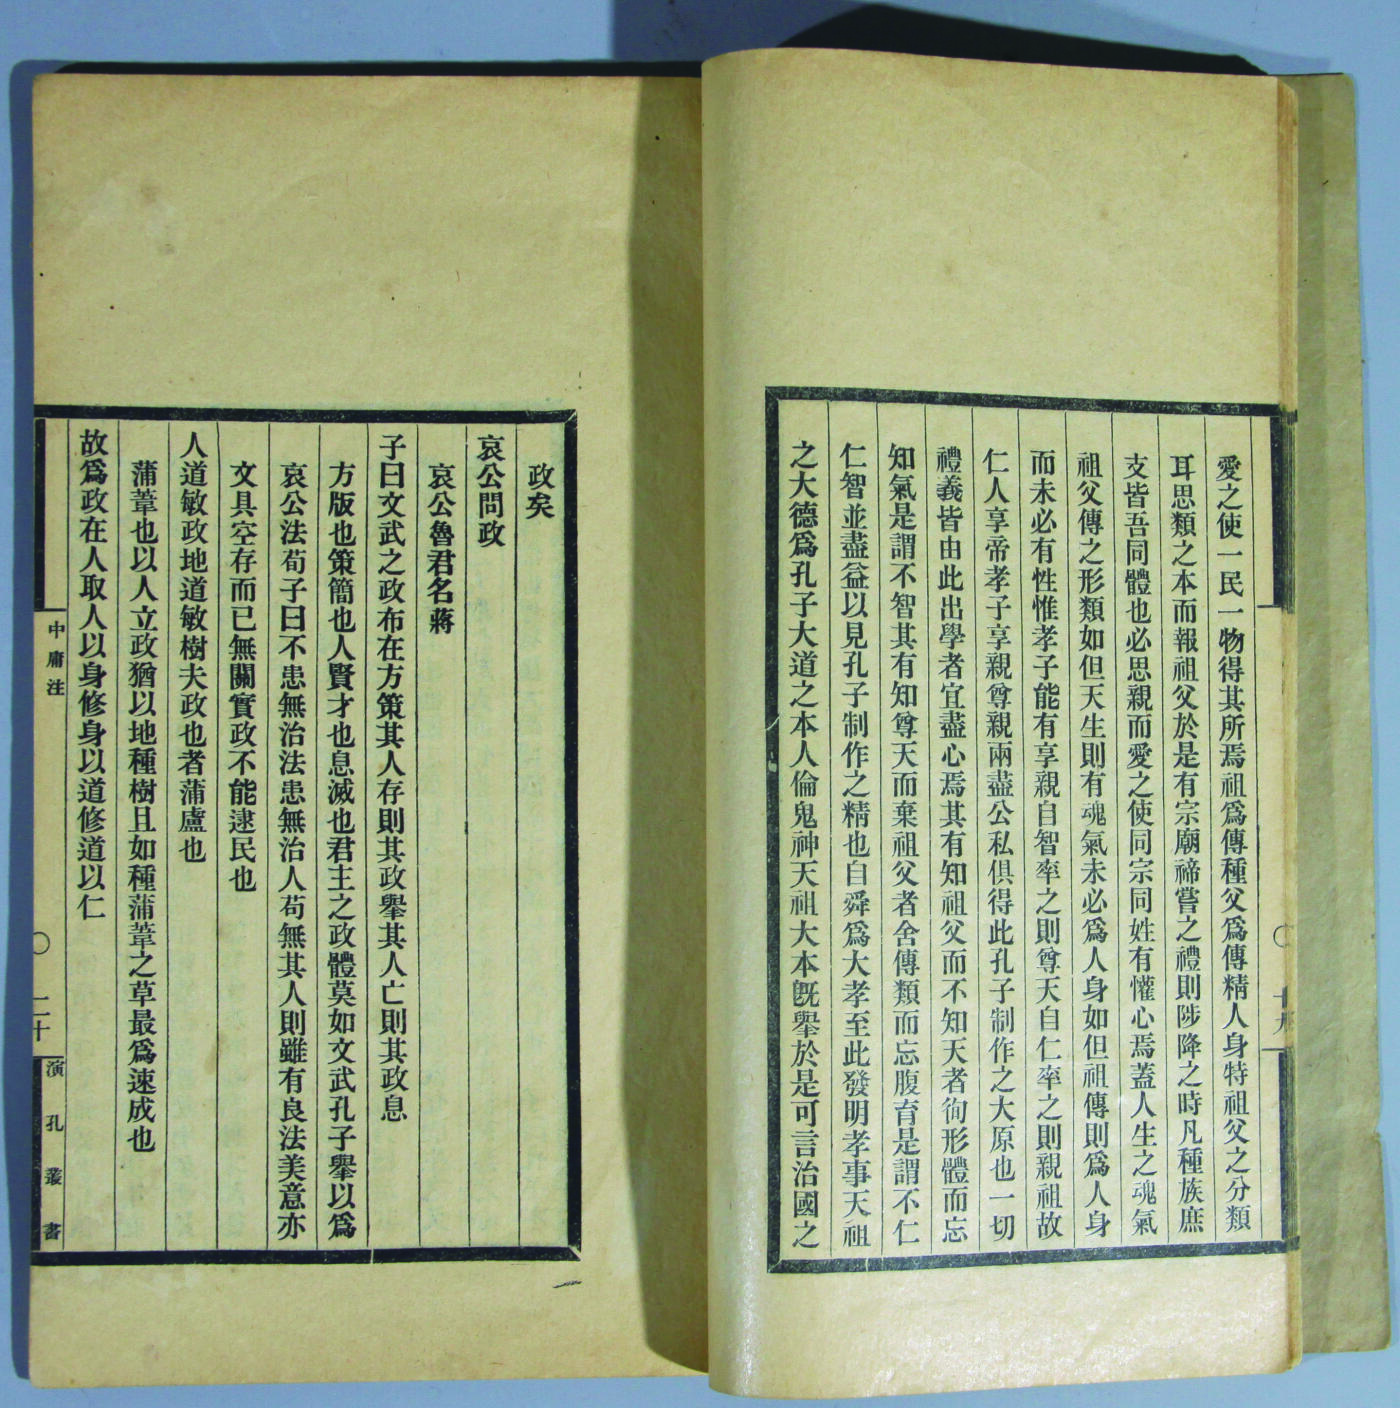 愛之使一民一物得其所焉祖爲傳種父爲傳精人身特祖父之分類
耳思類之本而報祖父於是有宗廟禘嘗之禮則陟降之時凡種族庶
支皆吾同體也必思親而愛之使同宗同姓有懽心焉蓋人生之魂氣
祖父傳之形類如但天生則有魂氣未必爲人身如但祖傳則爲人身
而未必有性惟孝子能有享親自智率之則尊天自仁率之則親祖故
仁人享帝孝子享親尊親兩盡公私俱得此孔子制作之大原也一切
禮義皆由此出學者宜盡心焉其有知祖父而不知天者徇形體而忘
知氣是謂不智其有知尊天而棄祖父者舍傳類而忘腹育是謂不仁
仁智並盡益以見孔子制作之精也自舜爲大孝至此發明孝事天祖
之大德爲孔子大道之本人倫鬼神天祖大本旣舉於是可言治國之
十九
政矣
哀公問政
哀公魯君名蔣
子曰文武之政布在方策其人存則其政舉其人亡則其政息
方版也策簡也人賢才也息滅也君主之政體莫如文武孔子舉以爲
哀公法荀子曰不患無治法患無治人苟無其人則雖有良法美意亦
文具空存而已無關實政不能逮民也
人道敏政地道敏樹夫政也者蒲盧也
蒲葦也以人立政猶以地種樹且如種蒲葦之草最爲速成也
故爲政在人取人以身修身以道修道以仁
中庸注
〇 二十
演孔叢書